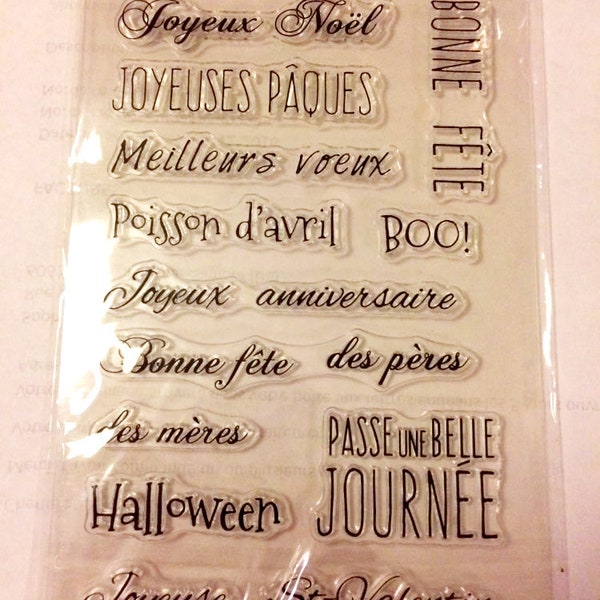 Joyeux Noël
BONNE FÊTE
JOYEUSES PÂQUES
Meilleurs voeux
Poisson d'avril
BOO!
Joyeux anniversaire
Bonne fête
des pères
des mères
PASSE UNE BELLE
JOURNÉE
Halloween
Joyeuse St-Valentin